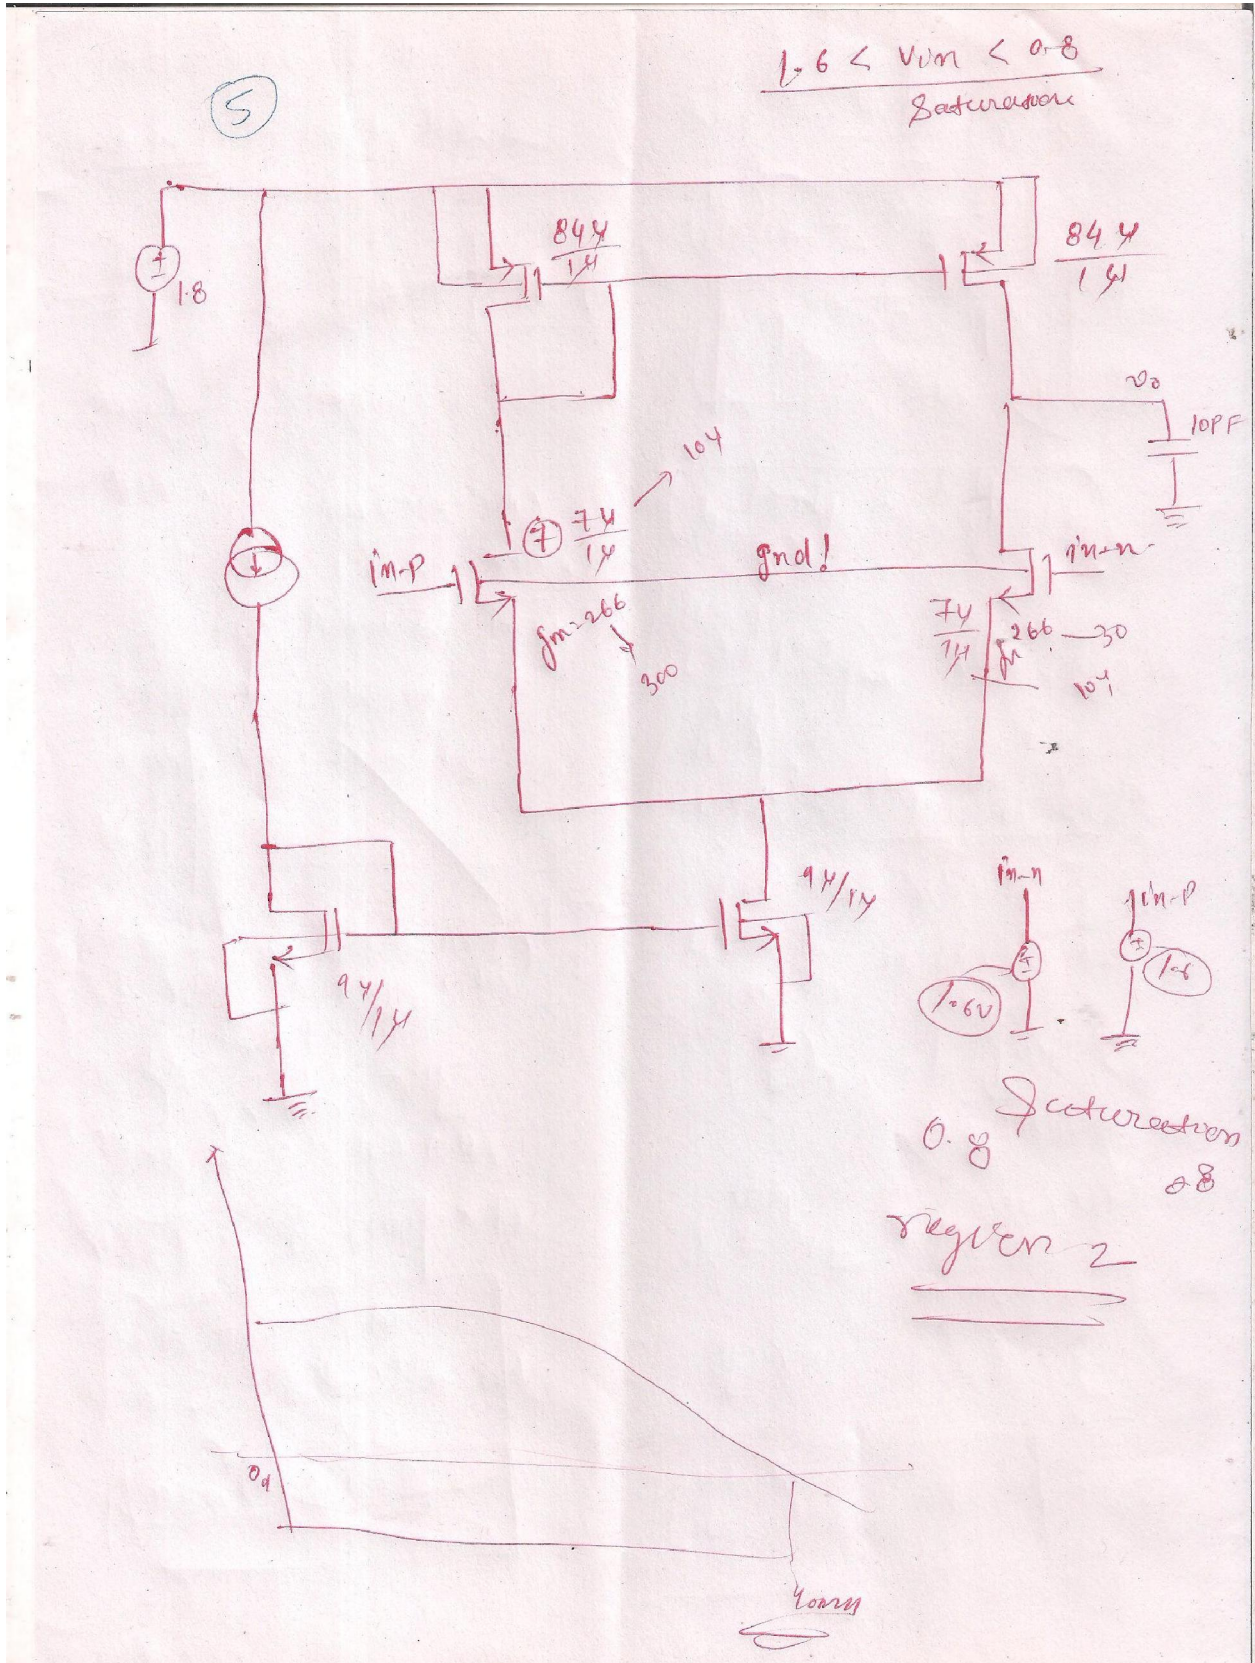 1.6 < vin < 0.8
Saturation
5
84μ
1μ
84μ
1μ
1.8
vo
10PF
10μ
7
7μ
1μ
in-p
gnd!
in-n
gm=266
300
7μ
1μ
gm 266 — 30
10μ
9μ/1μ
9μ/1μ
in-n
in-p
1.6v
1.6
Saturation
0.8
.8
region 2
0d